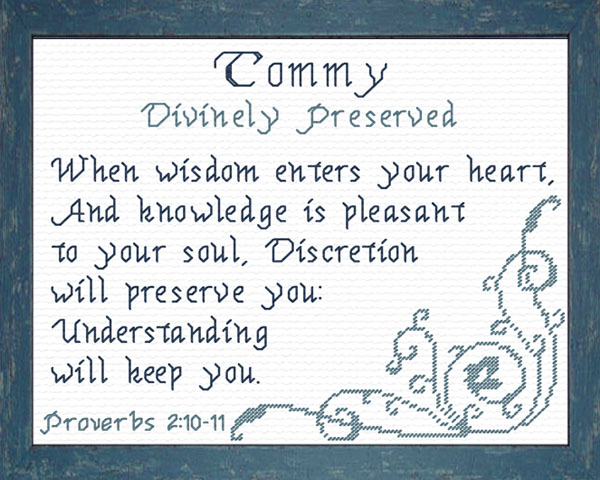 Tommy
Divinely Preserved
When wisdom enters your heart,
And knowledge is pleasant
to your soul, Discretion
will preserve you:
Understanding
will keep you.
Proverbs 2:10-11